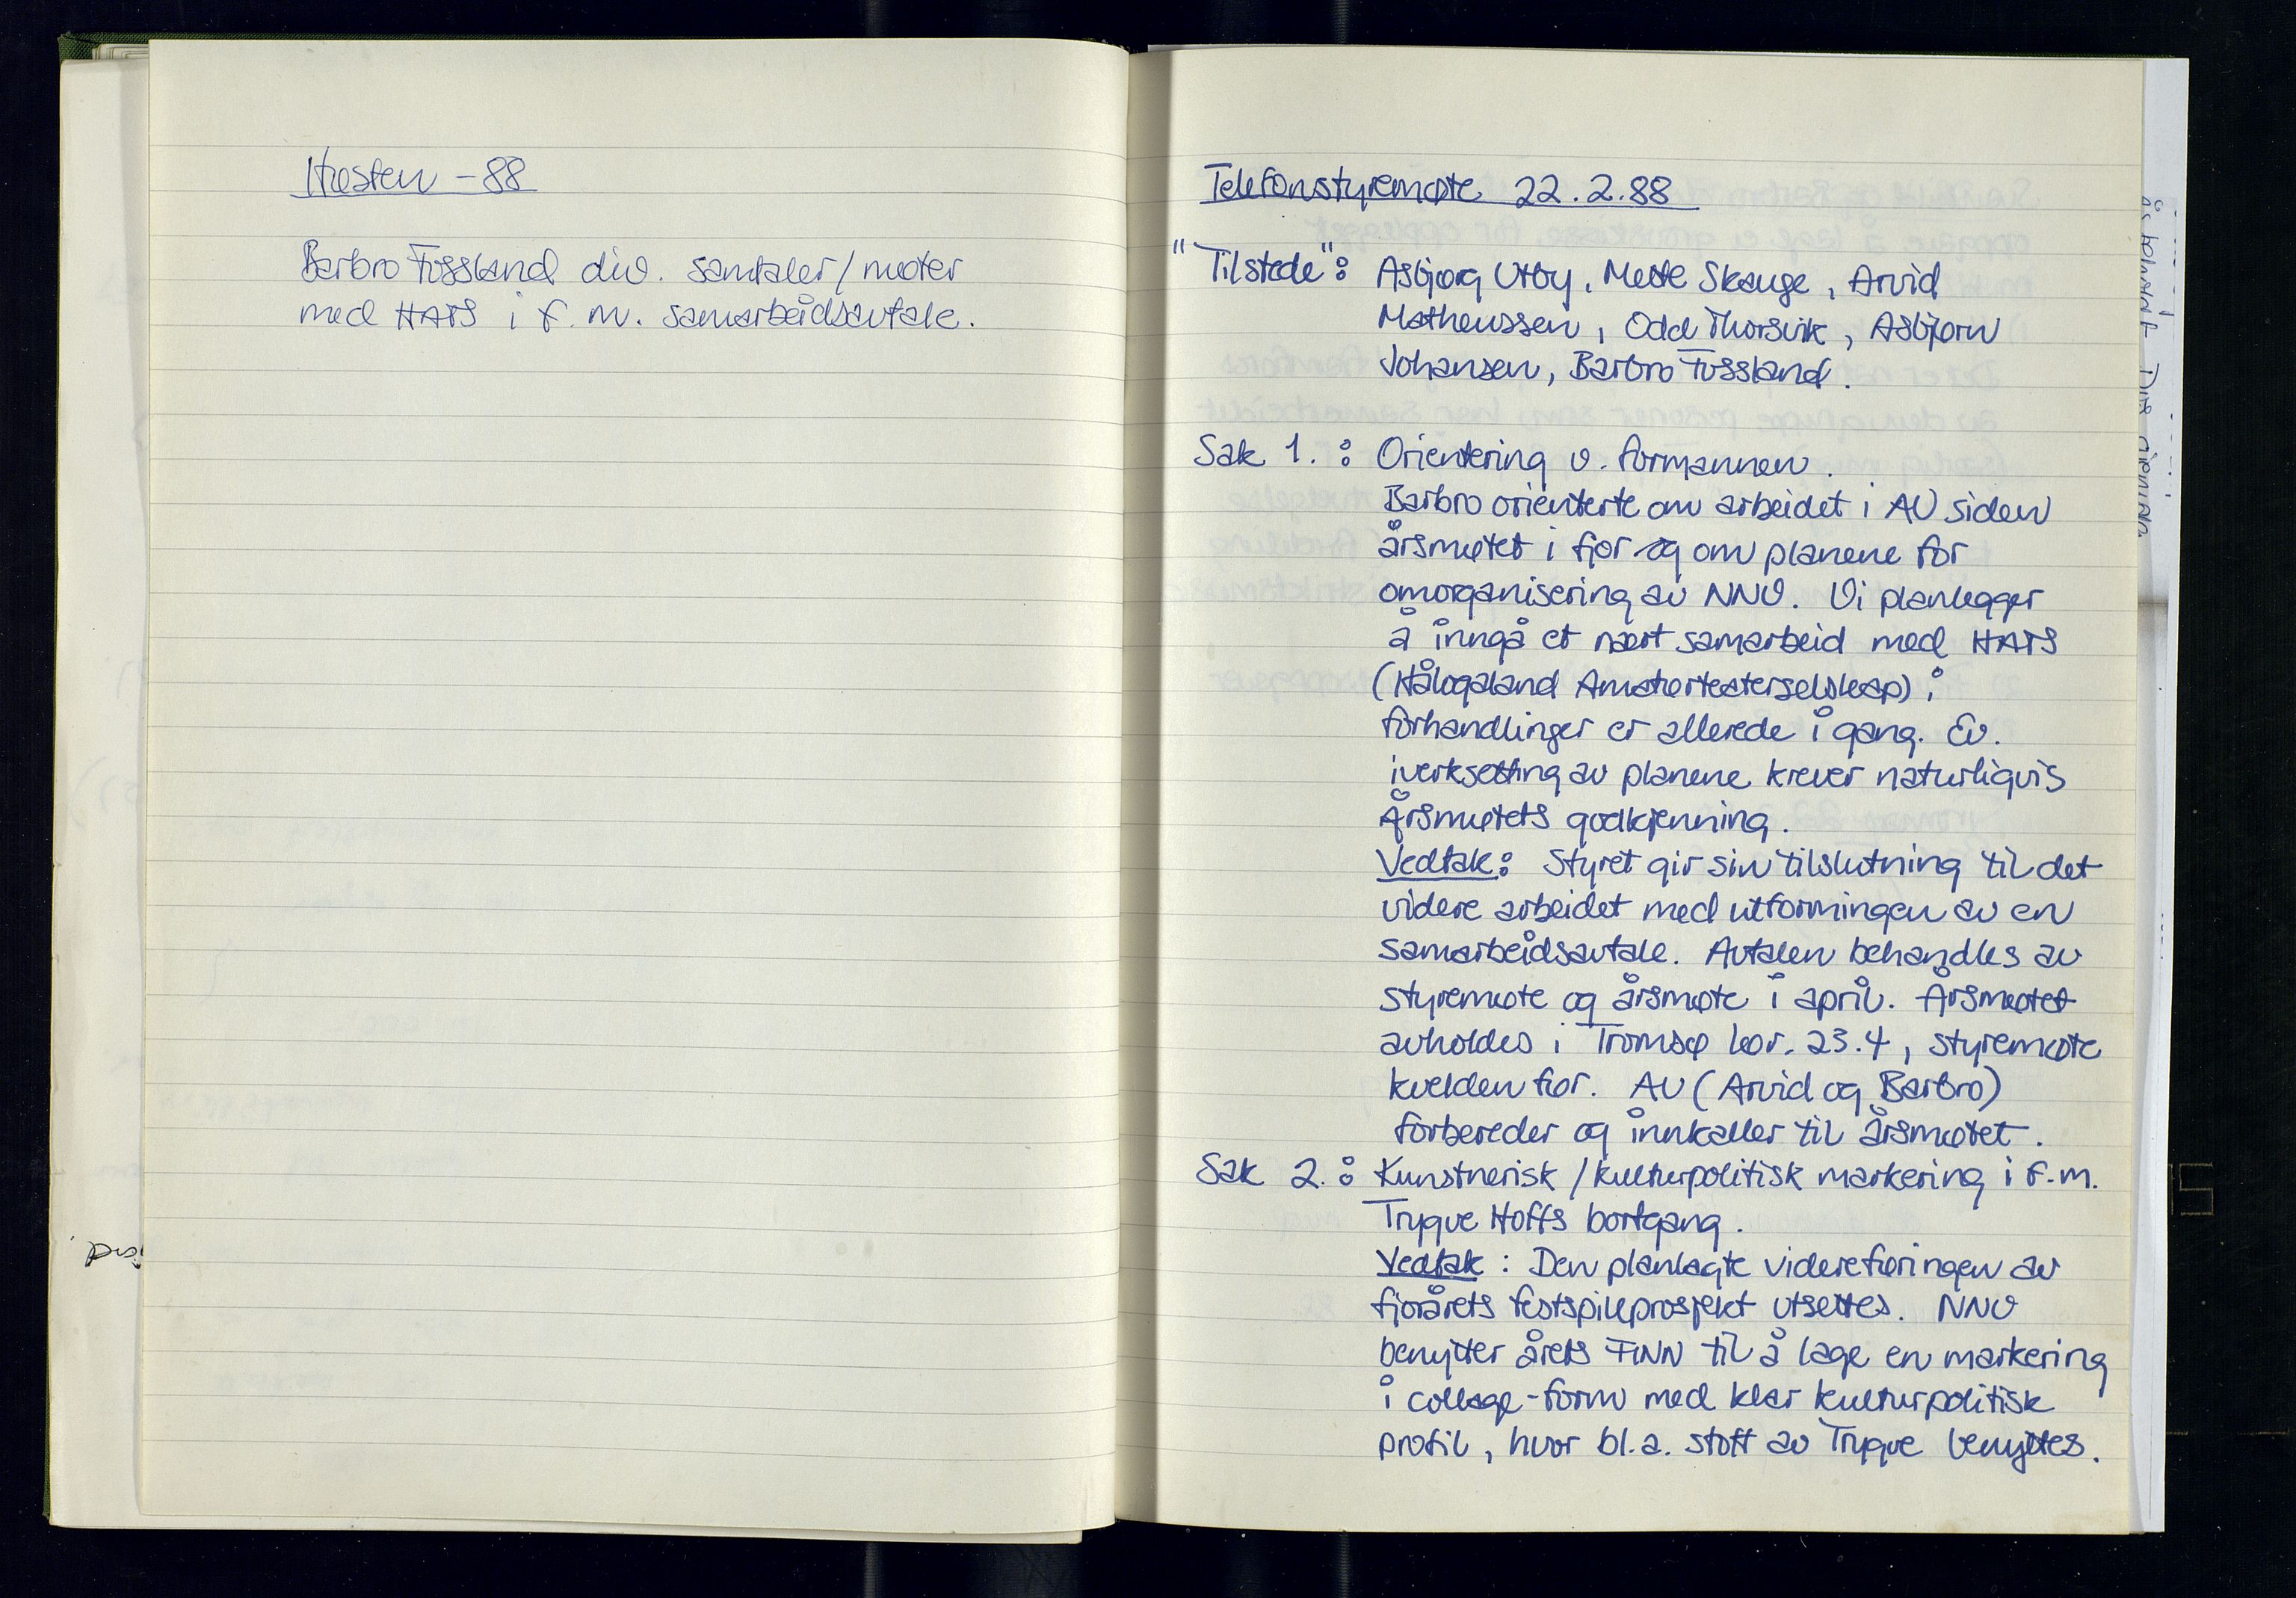 Høsten - 88
Barbro Fossland div. samtaler/møter
med HATS i f.m. samarbeidsavtale.
Telefonstyremøte 22.2.88
"Tilstede": Asbjørg Utby, Mette Skauge, Arvid
Matheussen, Odd Thorsvik, Asbjørn
Johansen, Barbro Fossland.
Sak 1.: Orientering v. formannen.
Barbro orienterte om arbeidet i AU siden
årsmøtet i fjor og om planene for
omorganisering av NNV. Vi planlegger
å inngå et nært samarbeid med HATS
(Hålogaland Amatørteaterselskap);
forhandlinger er allerede i gang. Ev.
iverksetting av planene krever naturligvis
Årsmøtets godkjenning.
Vedtak: Styret gir sin tilslutning til det
videre arbeidet med utformingen av en
samarbeidsavtale. Avtalen behandles av
styremøte og årsmøte i april. Årsmøtet
avholdes i Tromsø lør. 23.4, styremøte
kvelden før. AU (Arvid og Barbro)
forbereder og innkaller til årsmøtet.
Sak 2.: Kunstnerisk/kulturpolitisk markering i f.m.
Trygve Hoffs bortgang.
Vedtak: Den planlagte videreføringen av
fjorårets festspillprosjekt utsettes. NNV
benytter årets FINN til å lage en markering
i collage-form med klar kulturpolitisk
profil, hvor bl.a. stoff av Trygve benyttes.